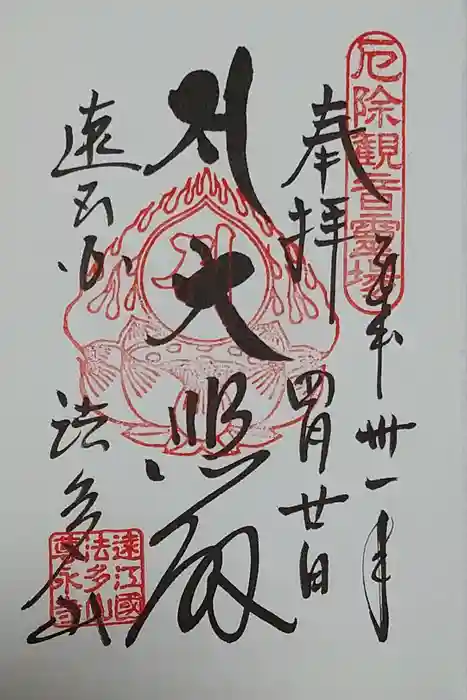 厄除觀音靈場
平成卅一年
奉拝
四月廿日
大悲殿
遠
法多山
遠江國
法多山
尊永寺